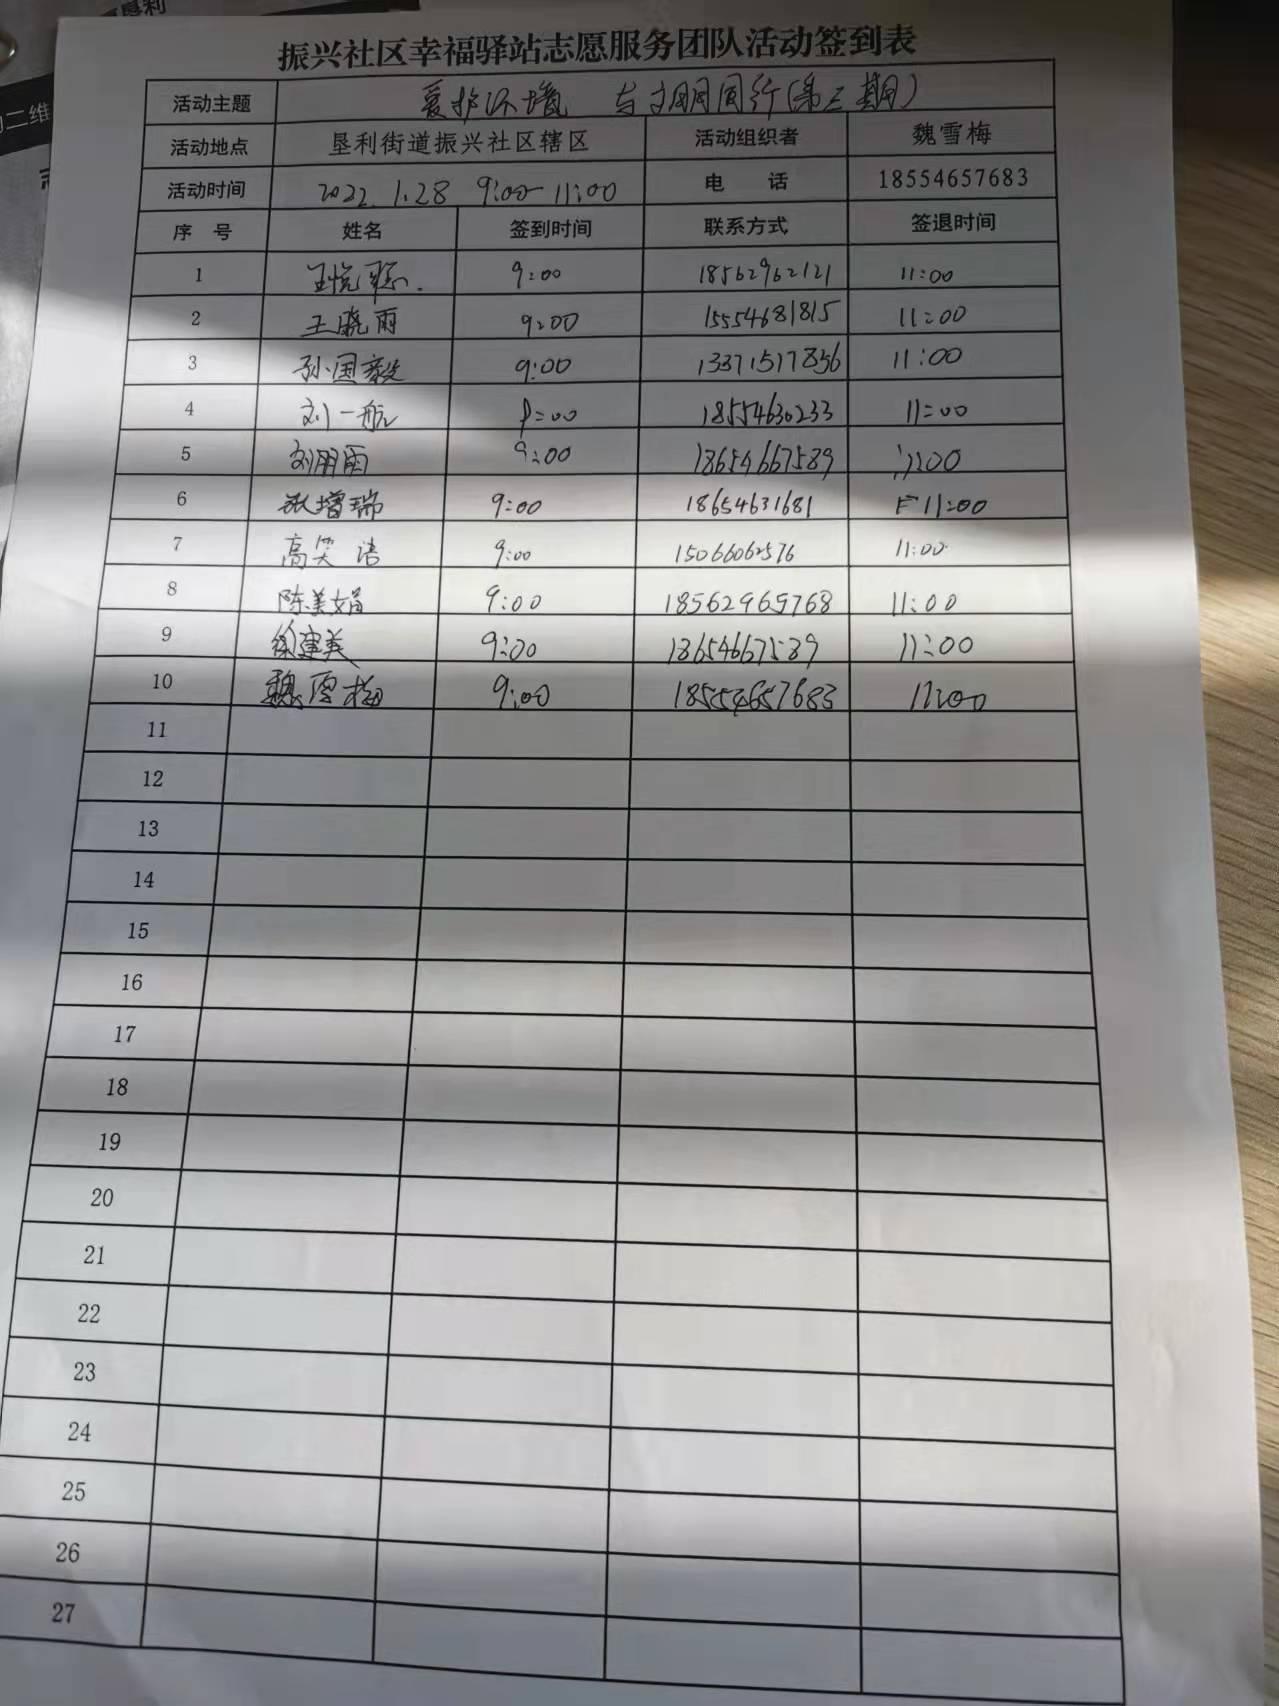 振兴社区幸福驿站志愿服务团队活动签到表
活动主题 爱护环境 与文明同行(第三期)
活动地点 垦利街道振兴社区辖区 活动组织者 魏雪梅
活动时间 2022.1.28 9:00-11:00 电 话 18554657683
序 号 姓名 签到时间 联系方式 签退时间
1 王悦 9:00 18562962121 11:00
2 王晓雨 9:00 15554681815 11:00
3 孙国毅 9:00 13371517856 11:00
4 刘一航 9:00 18554630233 11:00
5 刘朋雨 9:00 18654667589 11:00
6 张增瑞 9:00 18654631681 11:00
7 高笑洁 9:00 15066062576 11:00
8 陈美娟 9:00 18562965768 11:00
9 徐建美 9:00 18654667589 11:00
10 魏雪梅 9:00 18554657683 11:00
11
12
13
14
15
16
17
18
19
20
21
22
23
24
25
26
27